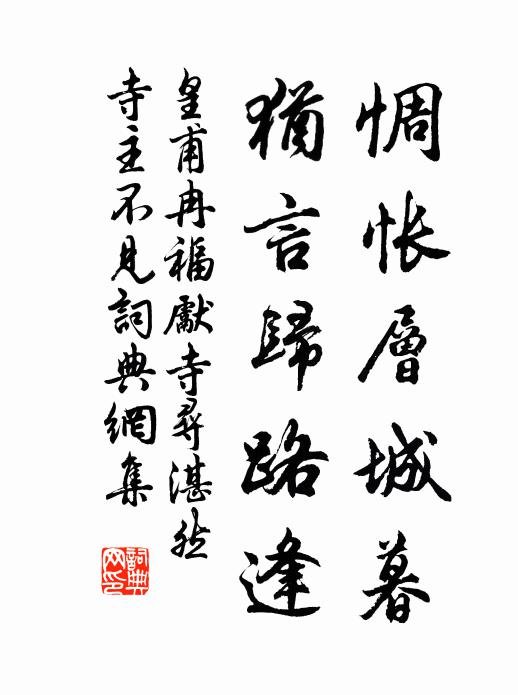 惆悵層城暮
猶言歸路逢
皇甫冉福獻寺尋湛然
寺主不見詞典網集
詞典網印